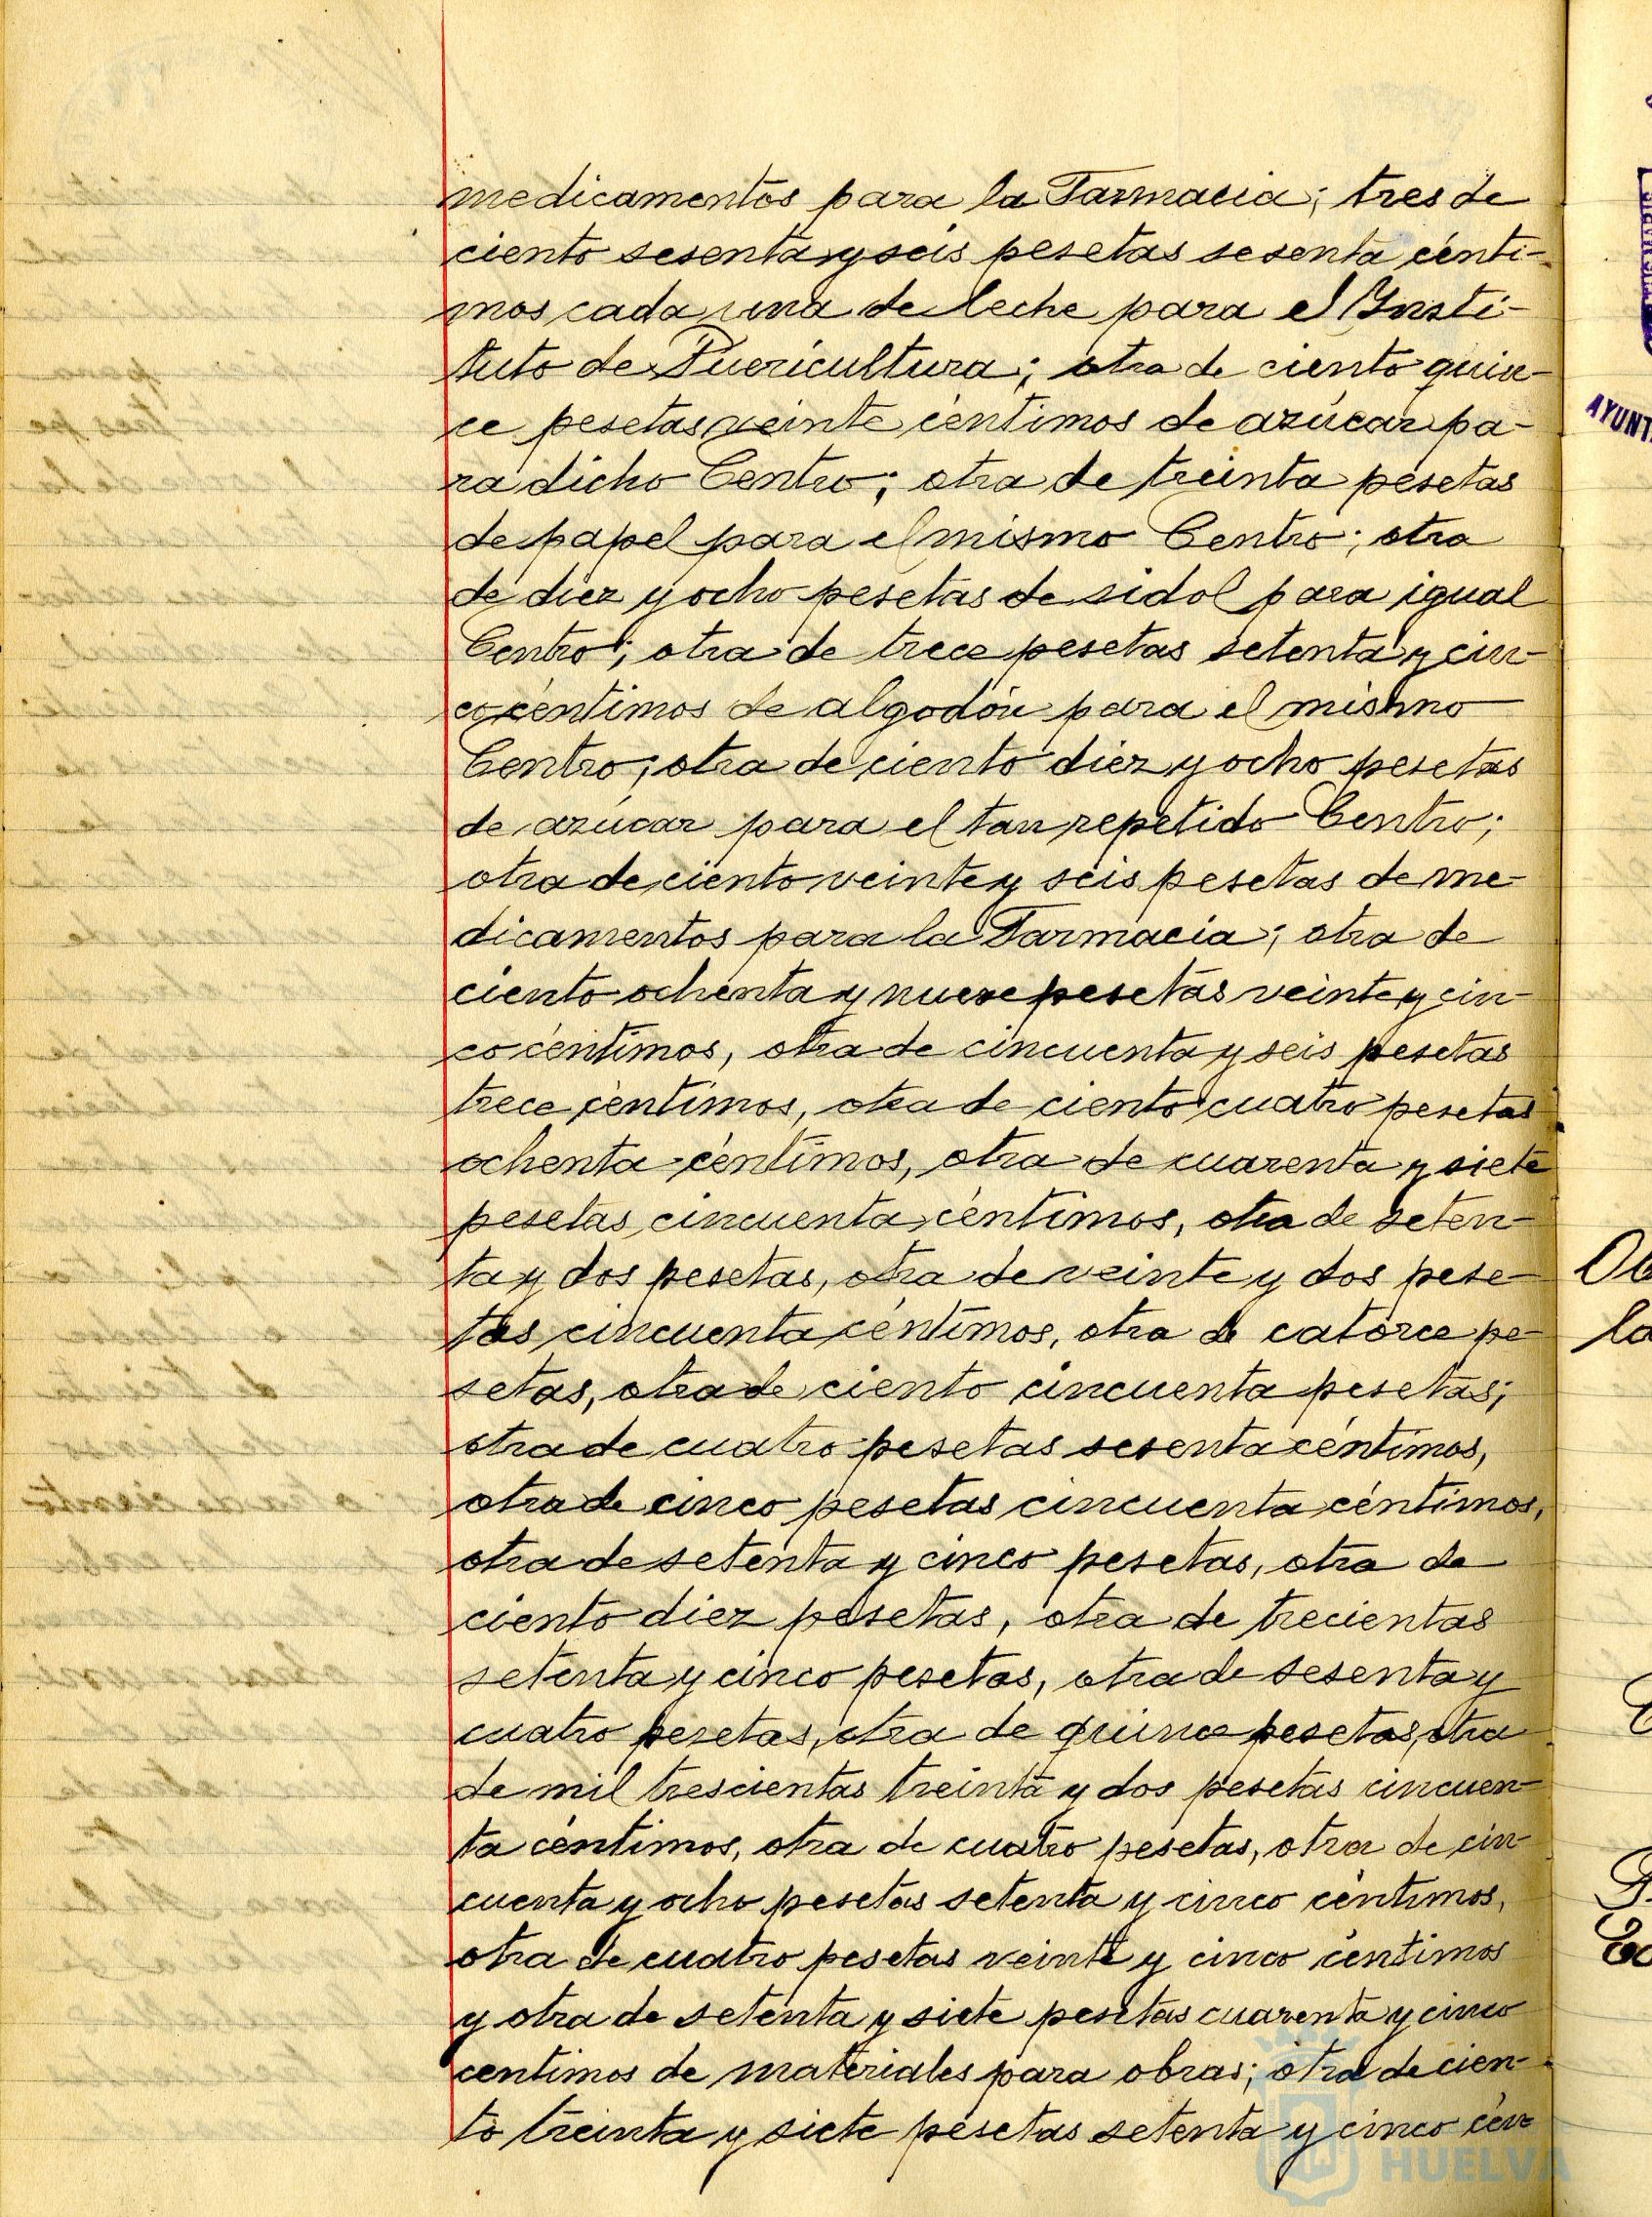 medicamentos para la Farmacia; tres de
ciento sesenta y seis pesetas sesenta cénti-
mos cada una de leche para el Insti-
tuto de Puericultura; otra de ciento quin-
ce pesetas veinte céntimos de azúcar pa-
ra dicho Centro; otra de treinta pesetas
de papel para el mismo Centro; otra
de diez y ocho pesetas de sidol para igual
Centro; otra de trece pesetas setenta y cin-
co céntimos de algodón para el mismo
Centro; otra de ciento diez y ocho pesetas
de azúcar para el tan repetido Centro;
otra de ciento veinte y seis pesetas de me-
dicamentos para la Farmacia; otra de
ciento ochenta y nueve pesetas veinte y cin-
co céntimos, otra de cincuenta y seis pesetas
trece céntimos, otra de ciento cuatro pesetas
ochenta céntimos, otra de cuarenta y siete
pesetas cincuenta céntimos, otra de seten-
ta y dos pesetas, otra de veinte y dos pese-
tas cincuenta céntimos, otra de catorce pe-
setas, otra de ciento cincuenta pesetas;
otra de cuatro pesetas sesenta céntimos,
otra de cinco pesetas cincuenta céntimos,
otra de setenta y cinco pesetas, otra de
ciento diez pesetas, otra de trecientas
setenta y cinco pesetas, otra de sesenta y
cuatro pesetas, otra de quince pesetas, otra
de mil trescientas treinta y dos pesetas cincuen-
ta céntimos, otra de cuatro pesetas, otra de cin-
cuenta y ocho pesetas setenta y cinco céntimos,
otra de cuatro pesetas veinte y cinco céntimos
y otra de setenta y siete pesetas cuarenta y cinco
centimos de materiales para obras; otra de cien-
to treinta y siete pesetas setenta y cinco cén-
HUELVA
AYUNT